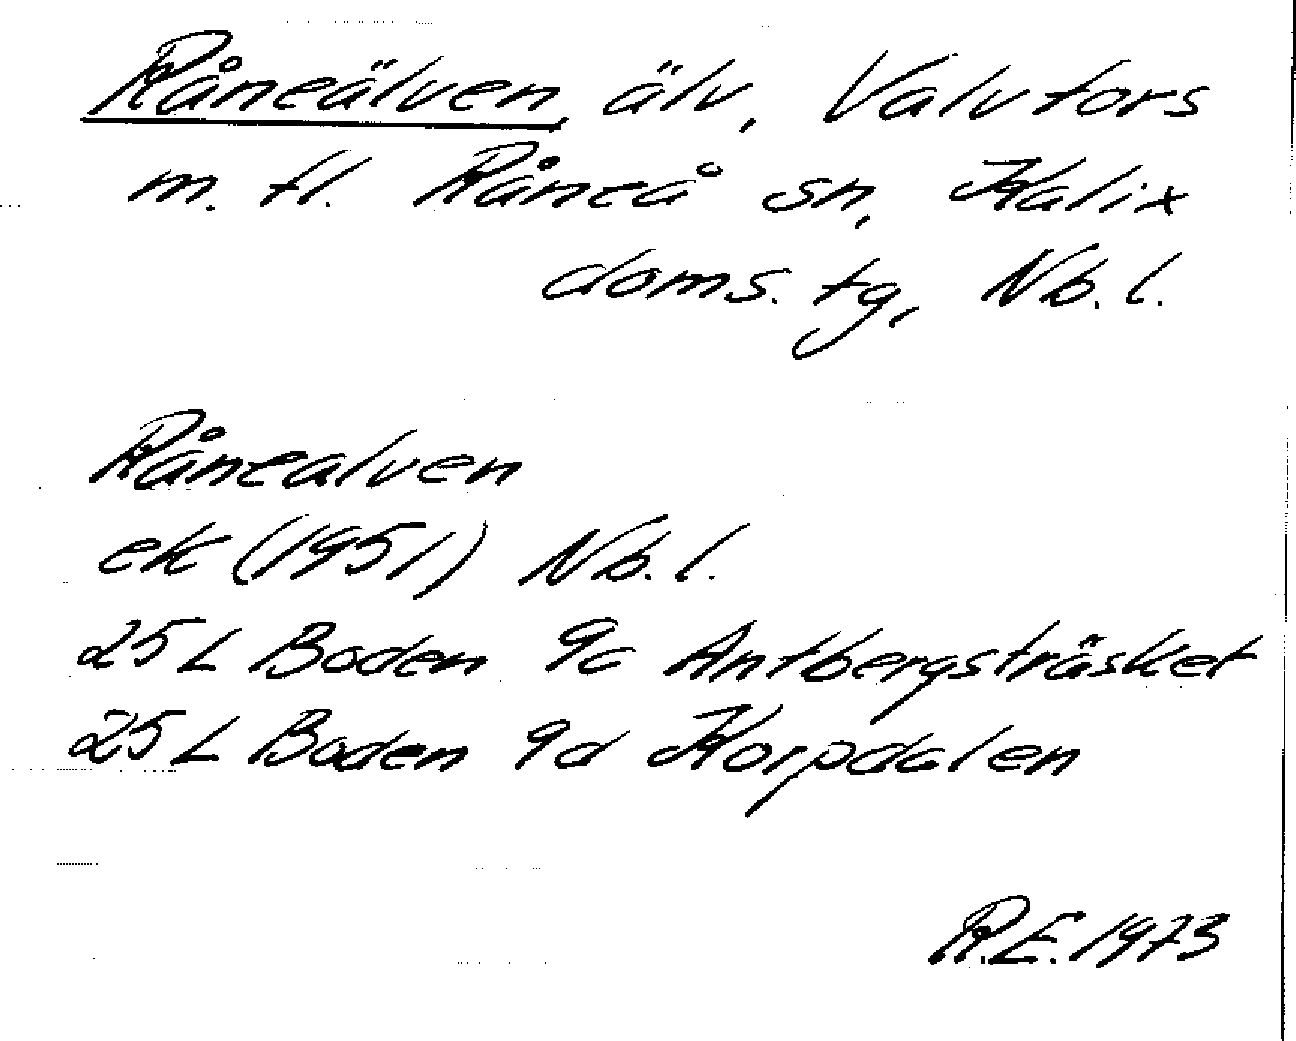 Råneälven, älv, Valvtors
m. fl. Råneå sn, Kalix
doms. tg, Nb. l.
Rånealven
ek (1951) Nb. l.
25 L Boden 9c Antbergsträsket
25 L Boden 9d Korpdalen
R.E. 1973